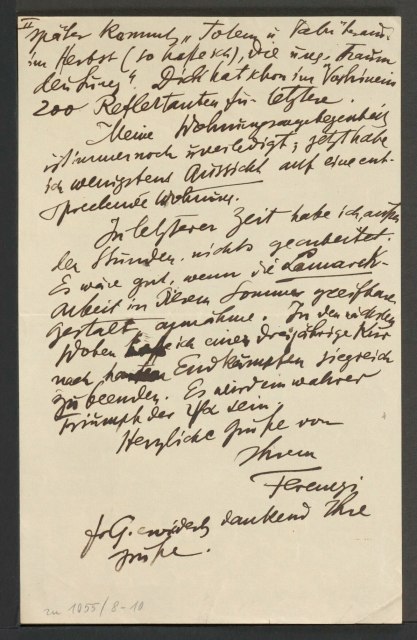 II
später kommt „Totem u. Tabu heraus
im Herbst (so hoffe ich), die ung. Traum
deutung“. Dick hat schon im Vorhinein
200 Reflektanten für letztere.
Meine Wohnungsangelegenheit
ist immer noch unerledigt; jetzt habe
ich wenigstens Aussicht auf eine ent-
sprechende Wohnung.
In letzterer Zeit habe ich, außer
den Stunden, nichts gearbeitet.
Es wäre gut, wenn die Lamarck-
Arbeit in diesem Sommer greifbare
Gestalt annähme. In den nächsten
Wochen hoffe ich eine dreijährige Kur
nach Endkämpfen siegreich
zu beenden. Es wird ein wahrer
Triumph der ΨΑ sein.
Herzliche Grüße von
Ihrem
Ferenczi
Fr G. erwidert dankend Ihre
Grüße.
zu 1055/8-10